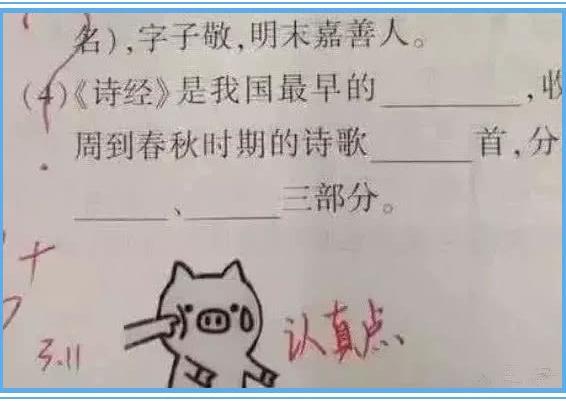 名),字子敬,明末嘉善人。
(4)《诗经》是我国最早的________,收
周到春秋时期的诗歌______首,分
______、______三部分。
3.11
认真点、